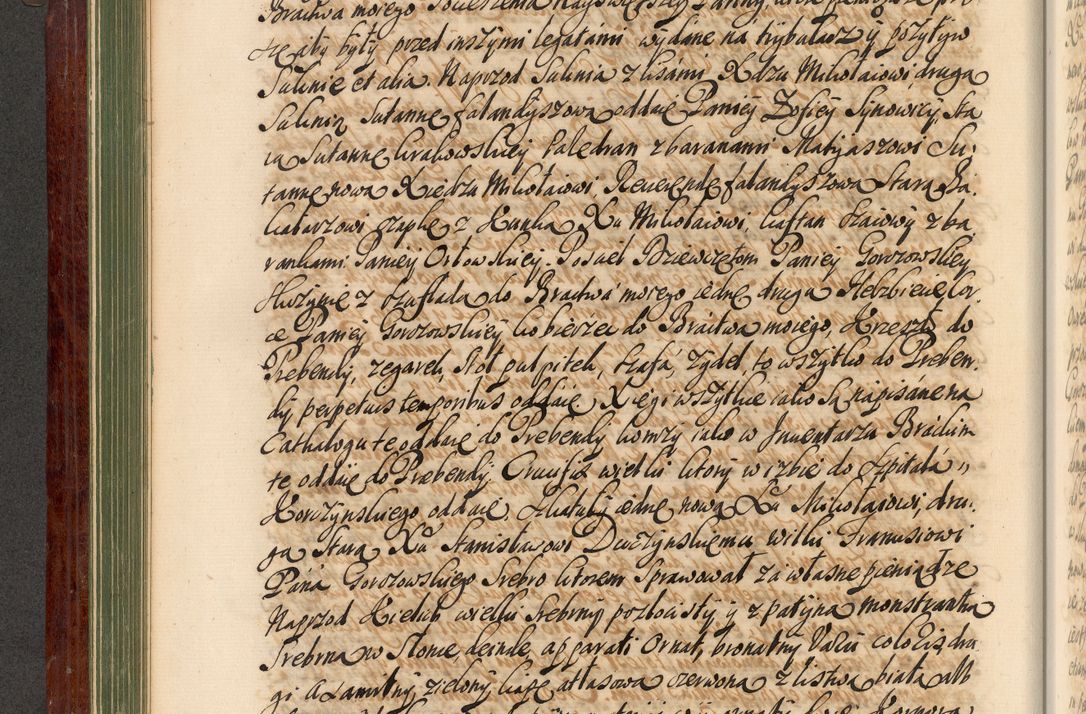 Bractwa mojego
rze aby były przed inszymi legatami wydane na trybularz y pozytyw
Suknie et alia. Naprzod Suknia z lisami Xdzu Mikołaiowi druga
Suknia Sutannę falandyszowa oddaię Paniey Zofiey Synowicy, sta
ra Sutannę krakowskiey kaledran z baranami Matyjaszowi Su.
tannę nowa Xiedzu Mikołaiowi, Reuerendę falandyszowa Stara Ba
kałarzowi czapkę z Kunka Xu Mikołaiowi, kaftan szaiowy z ba
rankami Paniey Orłowskiey. Posciel Dziewczętom Paniey Gorozowskiey
Skrzynie z szuflada do Bractwa mojego iednę druga
ce Paniey Gorozowskiey kobierzec do Bractwa mojego, Krzesło do
Prebendy, zegarek, Stoł pulpitek, szafa, zydel, to wszytko do Preben.
dy perpetuis temporibus oddaię Xięgi wszytkie iako są napisane na
Cathalogu te oddaię do Prebendy komzy iako w Inuentarzu Braickim
te oddaię do Præbendy, Crucifix wielki ktory w izbie do Szpitala
Korczynskiego oddaię, Szkatułę iednę nowa Xu Mikołaiowi, dru.
ga Stara Xu Stanisławowi Duczynskiemu wilki Franusiowi
Pana Gorozowskiego Srebro ktorem sprawował za własne pieniądze
Naprzod Kielich wielki srebrny pozłocisty y z patyna monstrantia
Srebrna w Słonie, deinde apparati Ornat, bronatny
gi Axamitny, zielony, kapę atłasowa czerwona z listwa biała alb